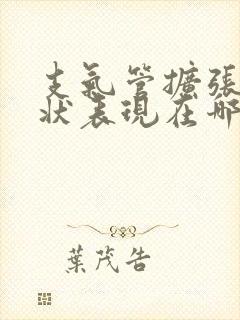 支氣管擴張
狀表現在哪
葉茂告